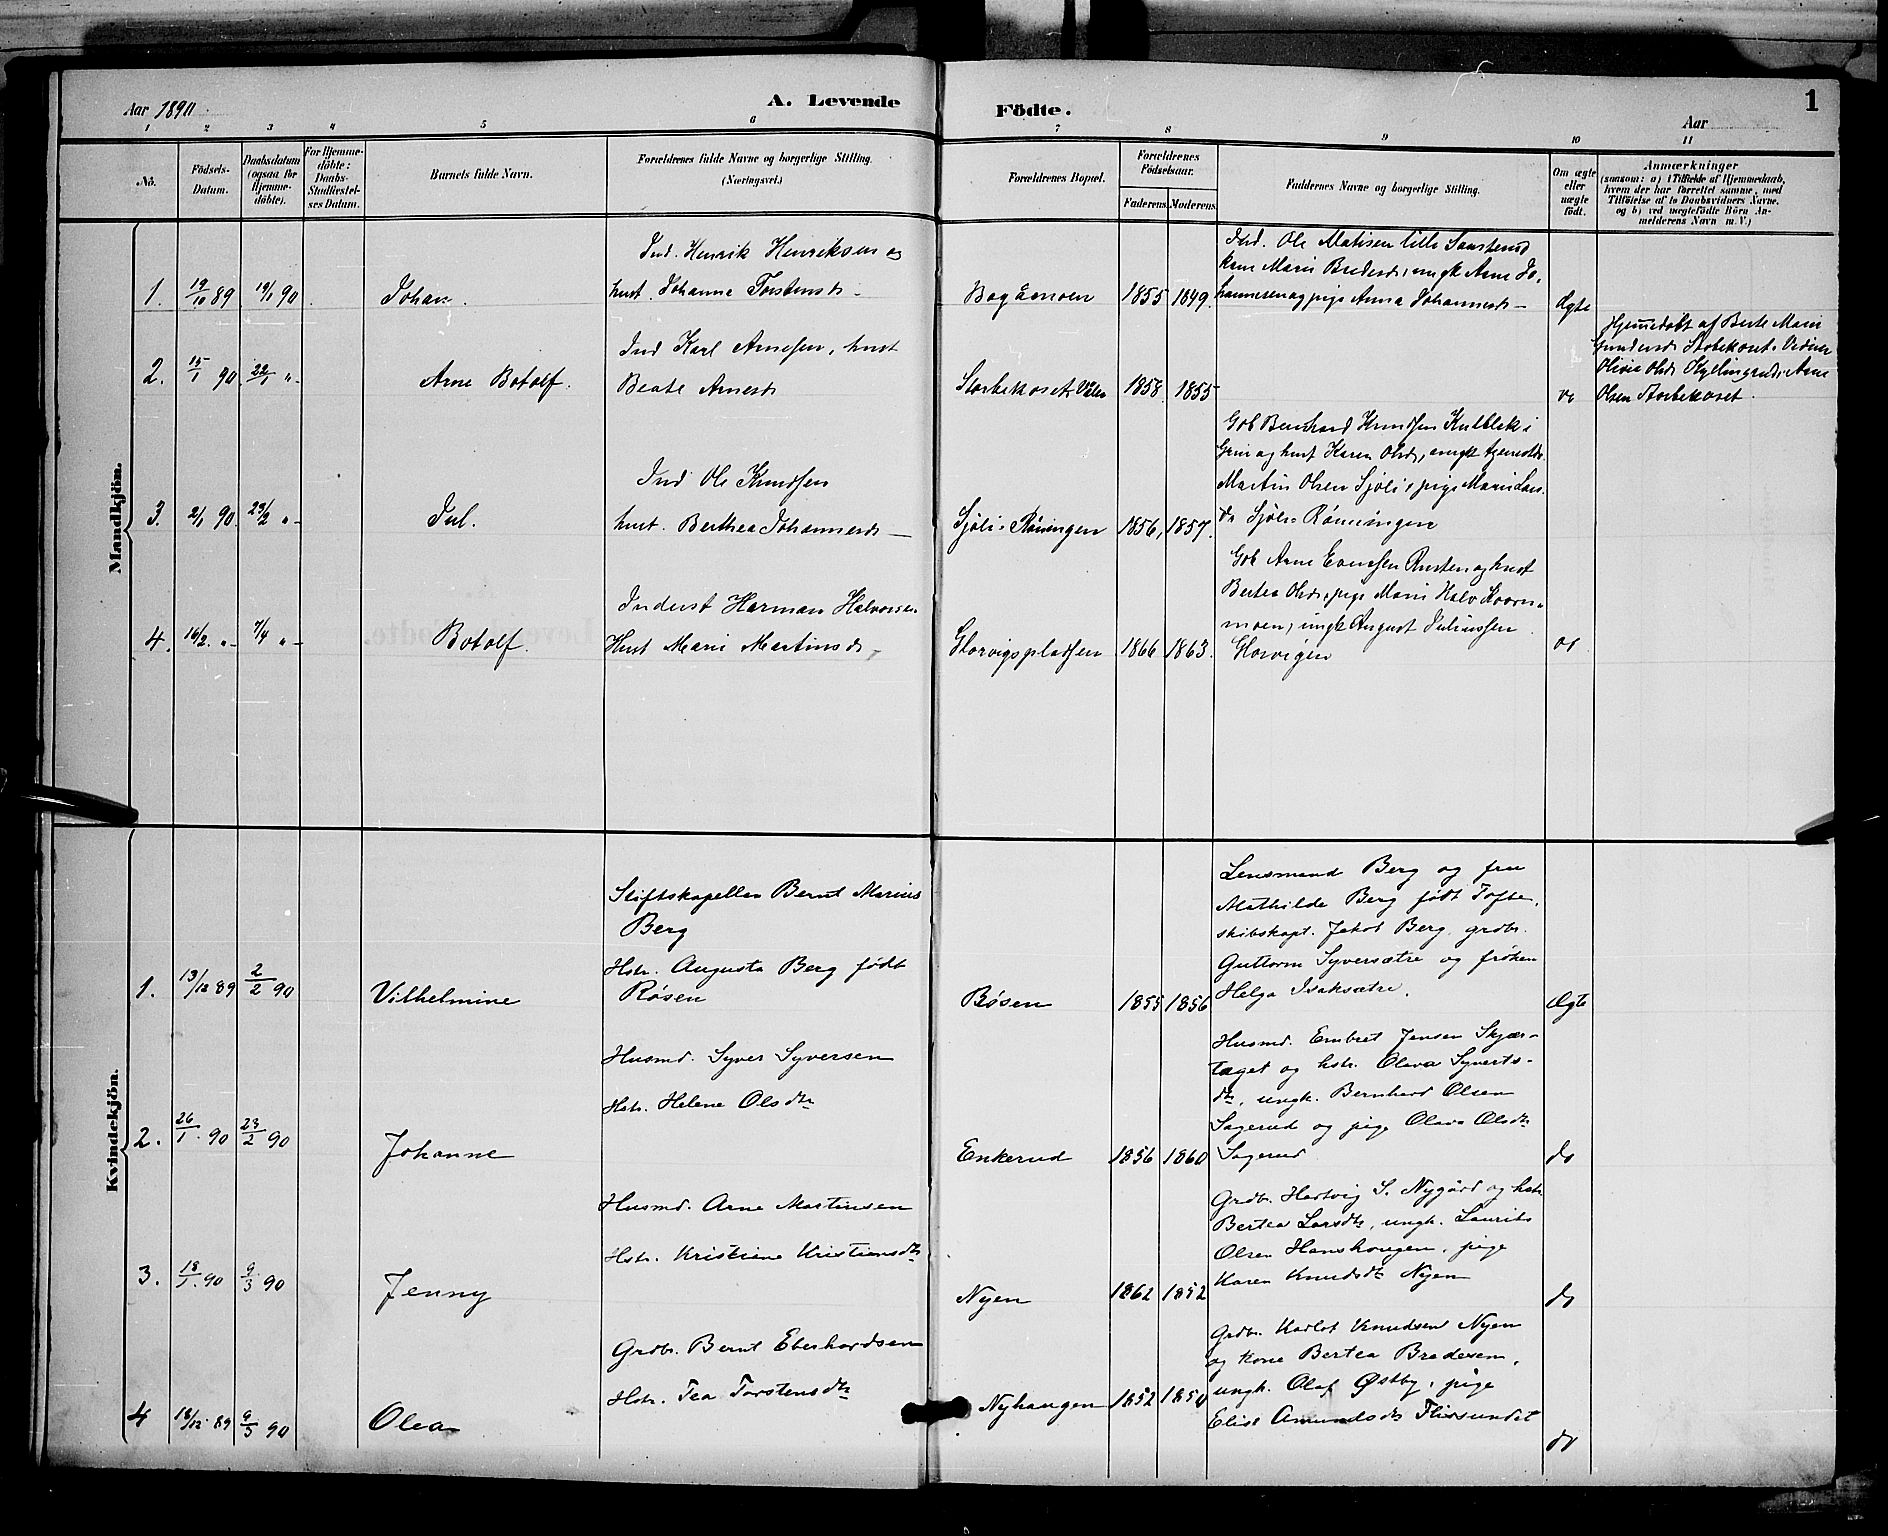 Aar 1890.
A. Levende Födte.
Aar
1
1 2 3 4 5 6 7 8 9 10 11
No.
Födsels-Datum.
Daabsdatum (ogsaa for Hjemme-döbte).
For Hjemme-döbte: Daabs-Stadfæstel-ses Datum.
Barnets fulde Navn.
Forældrenes fulde Navne og borgerlige Stilling.
(Næringsvei.)
Forældrenes Bopæl.
Forældrenes Födselsaar.
Faderens. Moderens.
Faddernes Navne og borgerlige Stilling.
Om ægte eller uægte födt.
Anmærkninger
(saasom: a) i Tilfælde af Hjemmedaab,
hvem der har forrettet samme, med
Tilföielse af to Daabsvidners Navne,
og b) ved uægtefödte Börn An-
melderens Navn m. V.)
Mandkjön.
1. 19/10 89 19/1 90 Johan.
Ind. Henrik Henriksen og
hust. Johanne Torstensd.
1855 1849.
Ind. Ole Matisen lille
kone Marie Bredesd, ungk Arne Jo-
hannesen og pige Anna Johannesd
Ægte
2. 15/1 90 22/1 "- Arne Botolf.
Ind Karl Arnesen, hust
Beate Arnesd
Storbekoset Valer 1858. 1855
do
Hjemmedøbt af Berte Marie
Gundersd Storbekoset. Vidner
Olivia Olsd Kjellingrud, Arne
Olsen Storbekoset.
3. 2/1 90. 23/2 "- Jul.
Ind Ole Knudsen
hust. Berthea Johannesd
Sjöli i Röningen 1856, 1857.
Gob Bernhard Knudsen Kulblik i
Grue og hust Karen Olsd, ungk
Martin Olsen Sjöli, pige Marie Lars
d Sjöli Rönningen
4. 16/2. "- 7/4 "- Botolf.
Inderst Herman Halvorsen
Hust Marie Martinsd
Glorvigspladsen 1866 1863.
Gob Arne Evensen Rusten og hust
Bertea Olsd, pige Marie Halv
moen, ungk August Juliussen
Glorvigen
do
Kvindekjön.
1. 13/12 89 2/2 90 Vilhelmine
Stiftskapellan Bernt Marius
Berg
Hstr. Augusta Berg født
Røsen
Bøsen 1855 1856
Lensmand Berg og fru
Mathilde Berg født Tofte,
skibskapt. Jakob Berg, grdbr.
Guttorm Syversætre og frøken
Helga Isaksætre.
Ægte
2. 26/1. 90 23/2 90 Johanne
Husmd. Syver Syversen
Hstr. Helene Olsdtr
Enkerud 1856 1860
Husmd. Embret Jensen Skjær-
laget og hstr. Olava Syverts-
dtr, ungk. Bernhard Olsen
Sagerud og pige Olava Olsdtr
Sagerud
do
3. 18/1. 90 9/3 90 Jenny
Husmd. Arne Martinsen
Hstr. Kristiane Kristiansdtr
Nyen 1862 1852
Grdbr. Hartvig S. Nygård og hstr
Bertea Larsdtr, ungk. Laurits
Olsen Hanshaugen, pige
Karen Knudsdtr Nyen
do
4 18/12. 89 9/3 90 Olea
Grdbr. Bernt Eberhardsen
Hstr. Tea Torstensdtr
Nyhaugen 1852 1850
Grdbr. Karlot Knudsen Nyen
og kone Bertea Bredesen,
ungk. Olaf Østby, pige
Elise Amundsdtr Flissundet
do